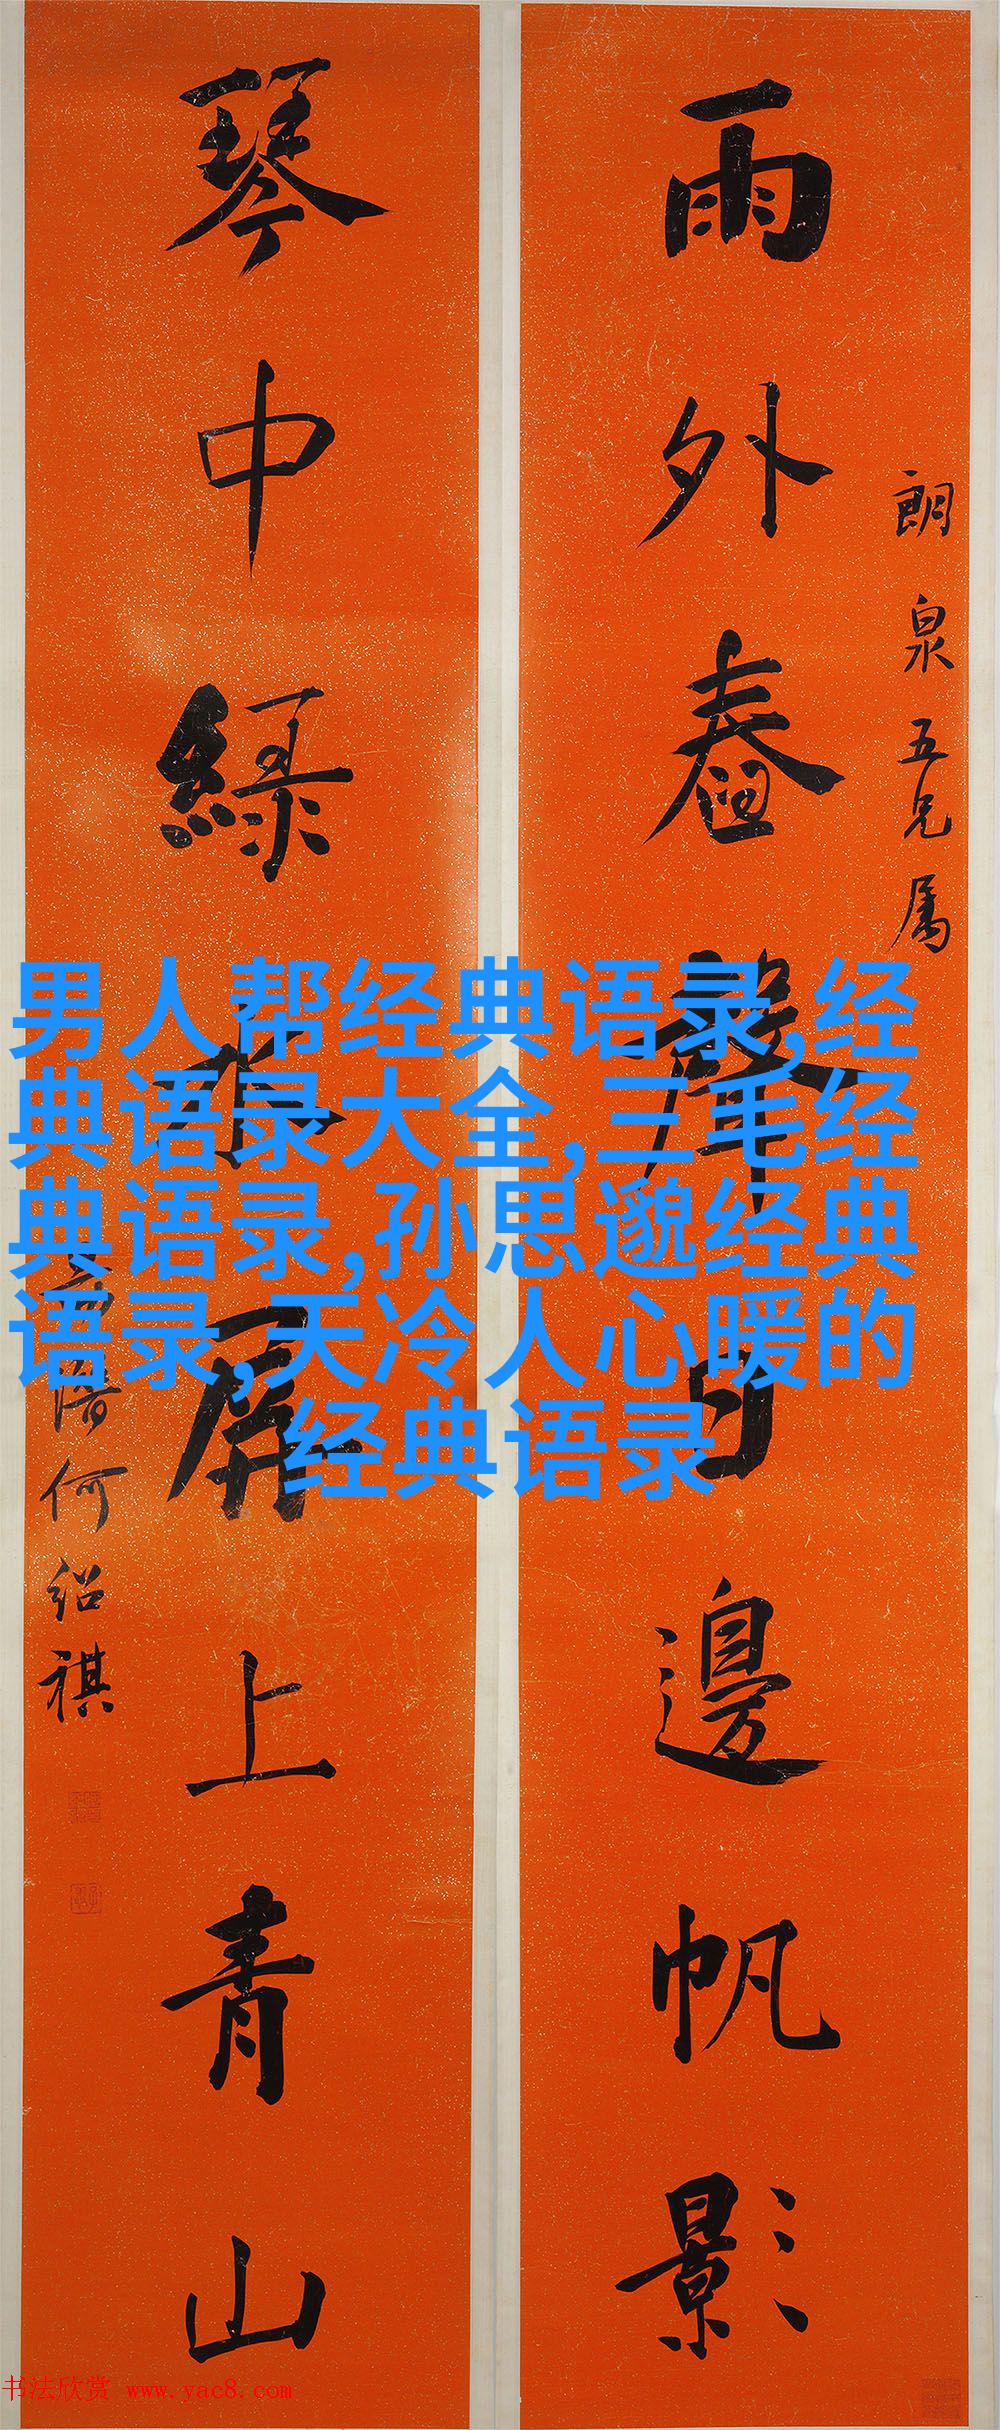 朗泉五兄属
雨外舂聲日邊帆影
琴中綠水屏上青山
何紹祺
男人帮经典语录,经
典语录大全,三毛经
典语录,孙思邈经典
语录,天冷人心暖的
经典语录
书法欣赏 www.yac8.com